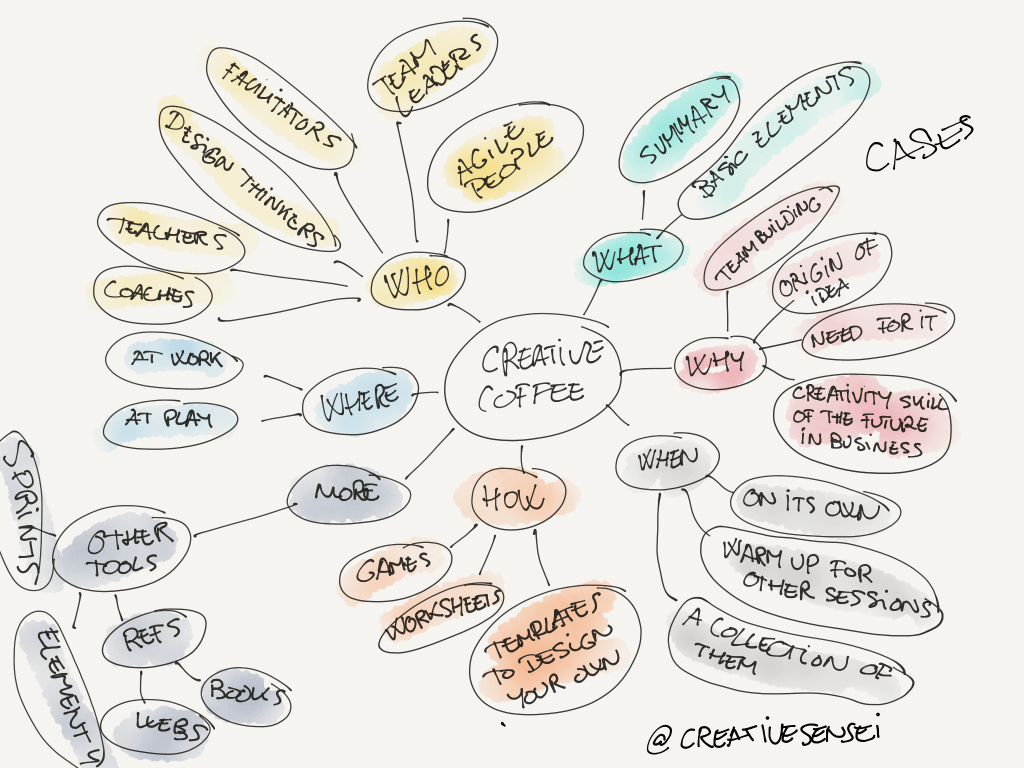 TEAM
LEADERS
FACILITATORS
AGILE
PEOPLE
DESIGN THINKERS
TEACHERS
COACHES
WHO
SUMMARY
BASIC ELEMENTS
WHAT
CASES
TEAM BUILDING
ORIGIN OF
IDEA
NEED FOR IT
WHY
CREATIVITY SKILL
OF THE FUTURE
IN BUSINESS
CREATIVE
COFFEE
AT WORK
AT PLAY
WHERE
MORE
SPRINTS
OTHER
TOOLS
ELEMENTS
REFS
BOOKS
WEBS
HOW
GAMES
WORKSHEETS
TEMPLATES
TO DESIGN
YOUR OWN
WHEN
ON ITS OWN
WARM UP FOR
OTHER SESSIONS
A COLLECTION OF
THEM
@CREATIVESENSEI